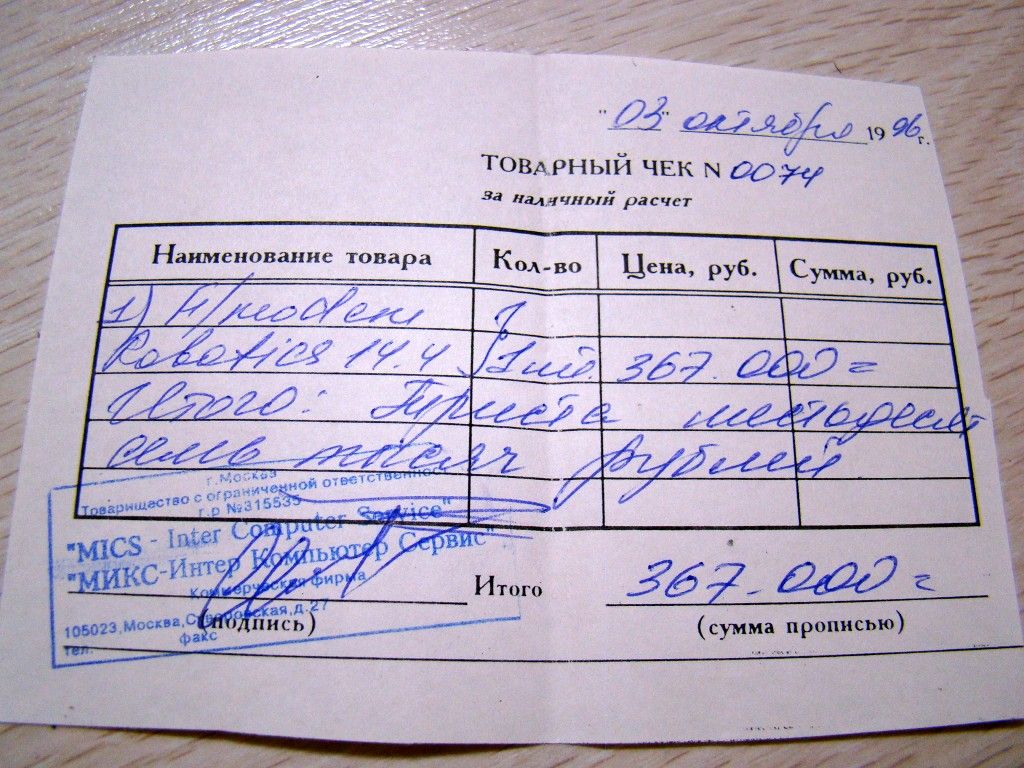 "03" октября 1996 г.
ТОВАРНЫЙ ЧЕК N 0074
за наличный расчет
Наименование товара Кол-во Цена, руб. Сумма, руб.
1) F/modem
Robotics 14.4 1 шт. 367.000=
Итого: Триста шестьдесят
семь тысяч рублей
г.Москва
Товарищество с ограниченной ответственностью
г.р №315535
"MICS - Inter Computer Service"
"МИКС-Интер Компьютер Сервис"
Коммерческая фирма
Итого 367.000=
105023,Москва,Суворовская,д.27
(подпись) (сумма прописью)
тел. факс